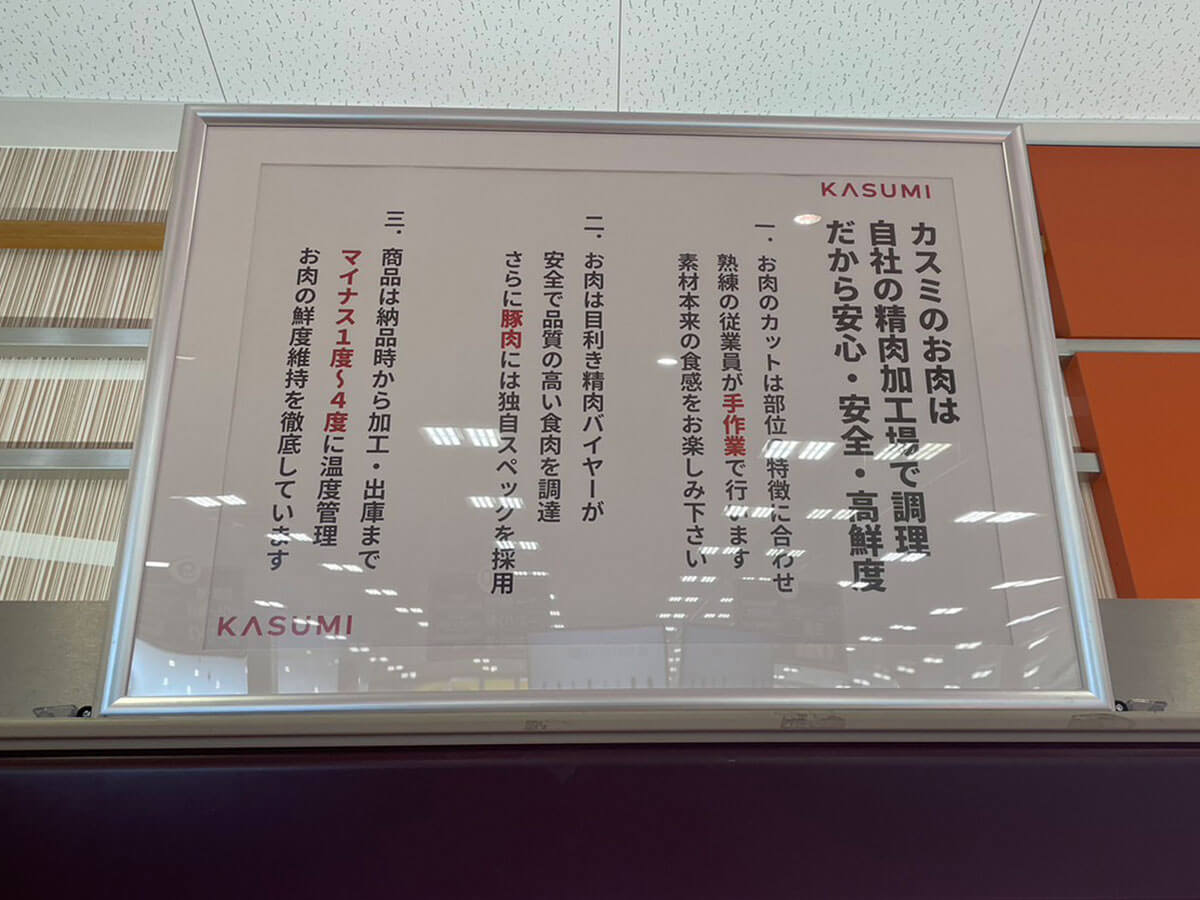 KASUMI
カスミのお肉は
自社の精肉加工場で調理
だから安心・安全・高鮮度
一．お肉のカットは部位の特徴に合わせ
熟練の従業員が手作業で行います
素材本来の食感をお楽しみ下さい
二．お肉は目利き精肉バイヤーが
安全で品質の高い食肉を調達
さらに豚肉には独自スペックを採用
三．商品は納品時から加工・出庫まで
マイナス１度〜４度に温度管理
お肉の鮮度維持を徹底しています
KASUMI